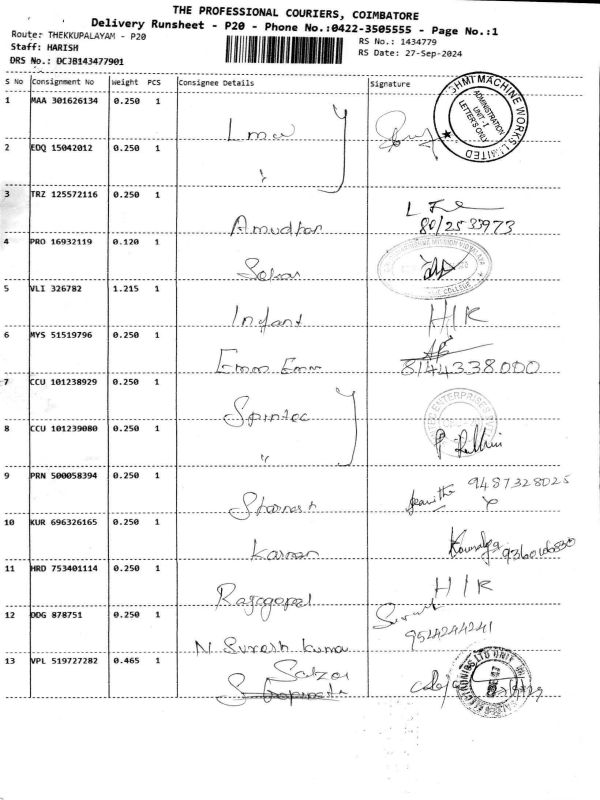 THE PROFESSIONAL COURIERS, COIMBATORE
Delivery Runsheet - P20 - Phone No.:0422-3505555 - Page No.:1
Route: THEKKUPALAYAM - P20
Staff: HARISH
DRS No.: DCJB143477901
RS No.: 1434779
RS Date: 27-Sep-2024
S No Consignment No Weight PCS Consignee Details Signature
1 MAA 301626134 0.250 1
Lmw
SHMI MACHINE WORKS LIMITED
ADMINISTRATION
UNIT-I
LETTERS ONLY
2 EDQ 15042012 0.250 1
"
3 TRZ 125572116 0.250 1
Amudhan
4 PRO 16932119 0.120 1
COLLEGE
5 VLI 326782 1.215 1
Infant H/R
6 MYS 51519796 0.250 1
Emm Emm 8144338000
7 CCU 101238929 0.250 1
Spintec
ENTERPRISES
8 CCU 101239080 0.250 1
"
9 PRN 500058394 0.250 1
9487328025
10 KUR 696326165 0.250 1
11 HRD 753401114 0.250 1
Rajagopal H/R
12 DDG 878751 0.250 1
N. Suresh Kumar 9524244241
13 VPL 519727282 0.465 1
Salzer